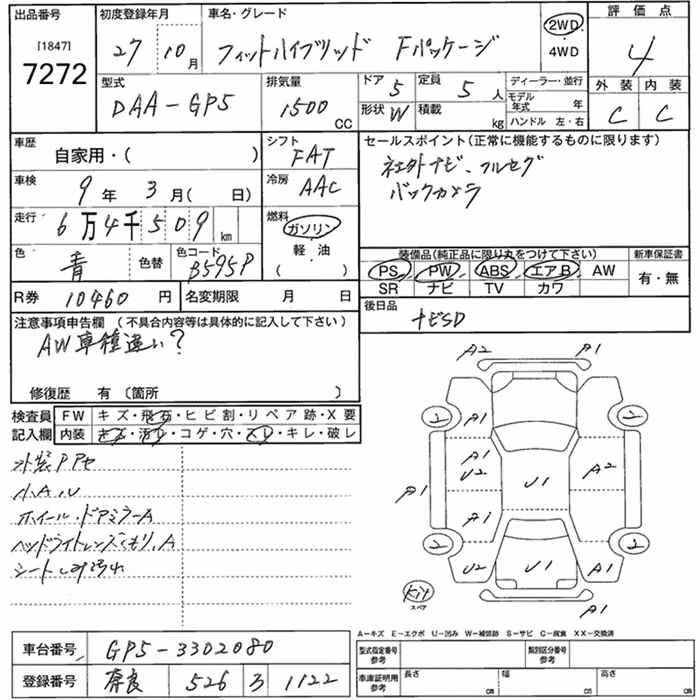 出品番号 初度登録年月 車名・グレード 評価点
[1847]
7272
27年10月 フィットハイブリッド Fパッケージ 2WD
4WD
4
型式 排気量 ドア 5 定員 5人 ディーラー・並行 外装 内装
DAA-GP5 1500 CC 形状 W 積載 kg モデル年式 年 C C
ハンドル 左・右
車歴 シフト セールスポイント(正常に機能するものに限ります)
自家用・( ) FAT 社外ナビ、フルセグ
車検 9年 3月( 日) 冷房 AAC バックカメラ
走行 6万4千509km 燃料 ガソリン
軽・油
( )
色 青 色替 色コード B595P
装備品(純正品に限り丸をつけて下さい) 新車保証書
PS PW ABS エアB AW 有・無
SR ナビ TV カワ
R券 10460円 名変期限 月 日
後日品
ナビSD
注意事項申告欄 (不具合内容等は具体的に記入して下さい)
AW車種違い?
修復歴 有 (箇所 )
検査員 FW キズ・飛石・ヒビ割・リペア跡・X要
記入欄 内装 キズ・汚れ・コゲ・穴・スレ・キレ・破レ
外装PPセ
小A,U
ホイール・ドアミラーA
ヘッドライトレンズくもり,A
シートしみ汚れ
A2 A1
2 A1 2
A1 A1 U2 U1 A2 A1
A1
2 2
U2 U1 A1
Kit
スペア
A1
A-キズ E-エクボ U-凹み W-補修跡 S-サビ C-腐食 XX-交換済
車台番号 GP5-3302080
登録番号 奈良 526 ヲ 1122
型式指定番号 参考 類別区分番号 参考
車庫証明用 参考 長さ cm 幅 cm 高さ cm